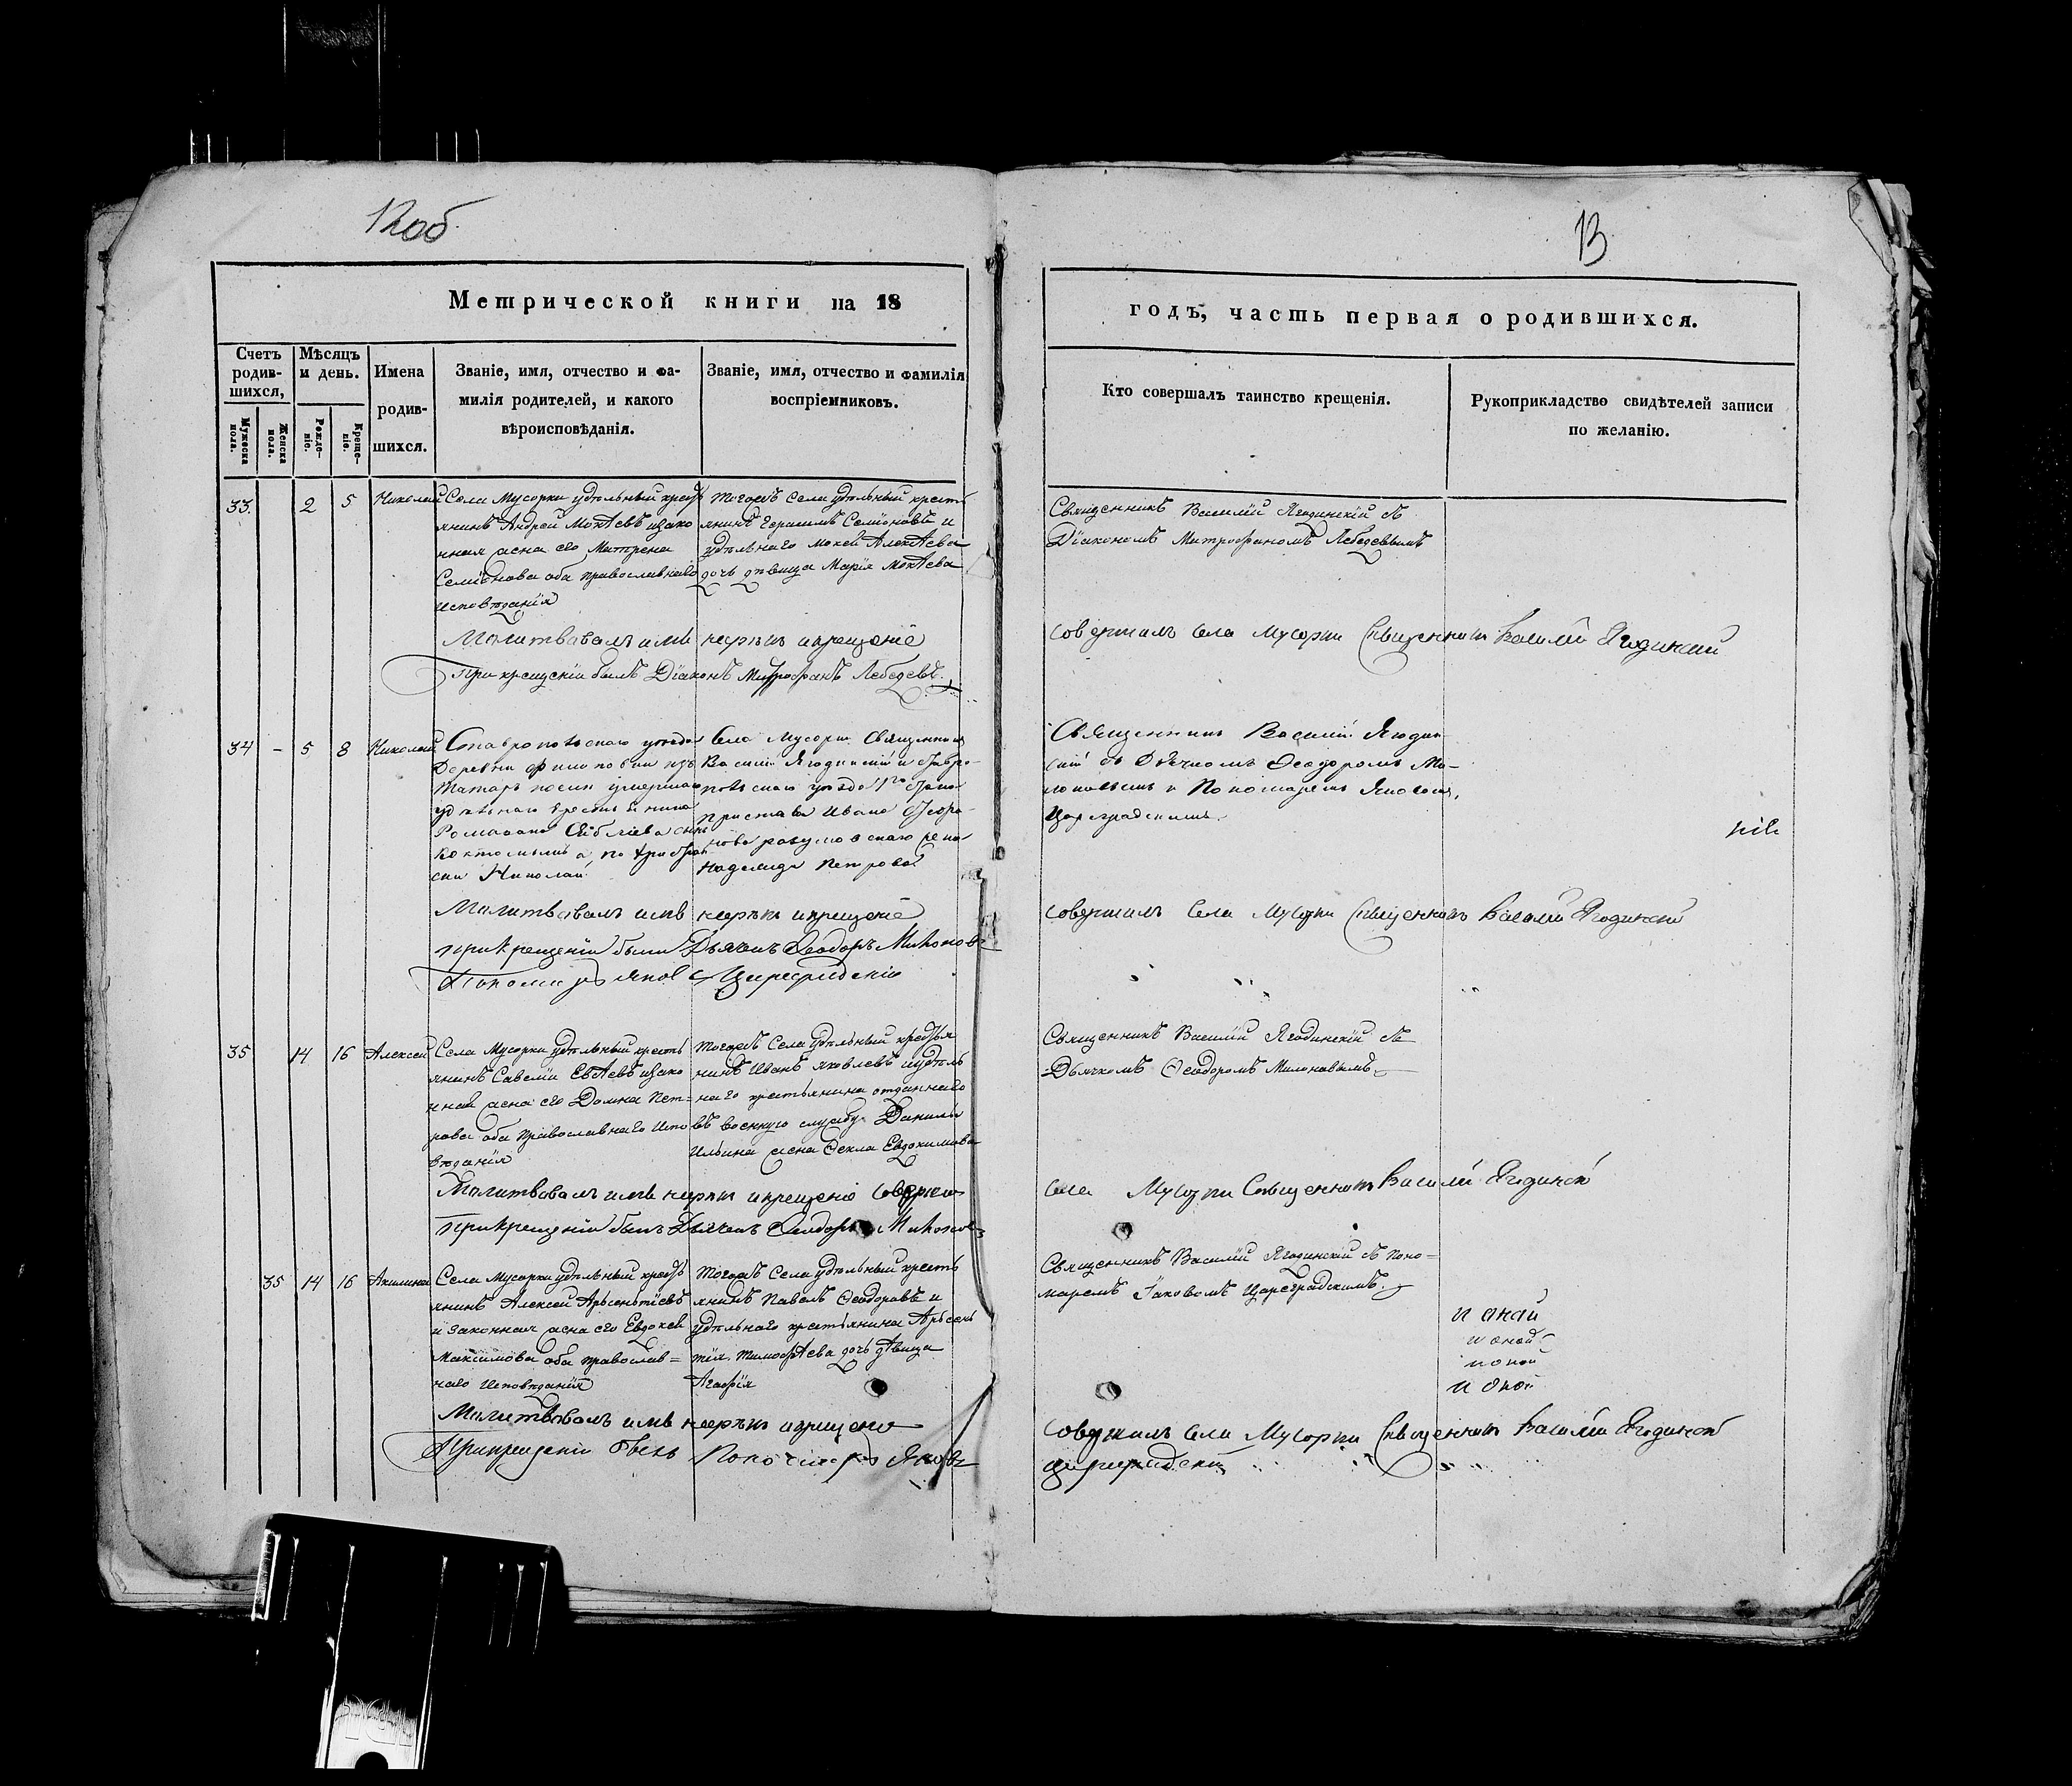 12об.
13
Метрической книги на 18
годъ, часть первая о родившихся.
Счетъ родившихся,
Мѣсяцъ и день.
Имена родив-
шихся.
Званіе, имя, отчество и фа-
милія родителей, и какого
вѣроисповѣданія.
Званіе, имя, отчество и фамилія
воспріемниковъ.
Кто совершалъ таинство крещенія.
Рукоприкладство свидѣтелей записи
по желанію.
Мужеска пола.
Женска пола.
Рожде-
ніе.
Креще-
ніе.
33. 2 5 Николай
Села Мусорки удѣльный крестъ
янинъ Андрей Мокѣевъ изако
нная жена его Матрена
Семіонова оба православнаго
исповѣданія
тогожъ села удѣльный крестъ
янинъ Герасимъ Семіоновъ и
удѣльнаго Мокея Алекѣева
дочь дѣвица Марія Мокѣева
Священникъ Василій Ягодинскій съ
Діакономъ Митрофаномъ Лебедевымъ
Молитвовалъ имя нарекъ и крещеніе
совершалъ села Мусорки Священникъ Василій Ягодинскій
При крещеніи былъ Діаконъ Митрофанъ Лебедевъ
34 - 5 8 Николай
Ставропольскаго уѣзда
Деревни Филиповки изъ
татаръ умершаго
удѣльнаго
а по
Николай
Села Мусорки Священникъ
Василій Ягодинскій и Ставро-
польскаго уѣзда 1го стана
пристава Ивана
жена
Надежда Петрова
Священникъ Василій Ягодин
скій съ Дьячкомъ Ѳеодоромъ Ми-
лоновымъ и Пономаремъ Яковомъ
Цареградскимъ.
Молитвовалъ имя нарекъ и крещеніе
совершалъ села Мусорки Священникъ Василій Ягодинскій
при крещеніи были Дьячекъ Ѳеодоръ Милоновъ
Пономарь Яковъ Цареградскій
35 14 16 Алексей
Села Мусорки удѣльный кресть
янинъ Савелій Евѣевъ изако
нная жена его Домна Пет=
рова оба православнаго испо
вѣданія
тогожъ Села удѣльный крестья
нинъ Иванъ Яковлевъ и удѣль
наго крестьянина отданнаго
въ военную службу Данилы
Ильина жена Ѳекла Евдокимова
Священникъ Василій Ягодинскій съ
Дьячкомъ Ѳеодоромъ Милоновымъ
Молитвовалъ имя нарекъ и крещеніе совершалъ
села Мусорки Священникъ Василій Ягодинскій
При крещеніи былъ Дьячекъ Ѳеодоръ Милоновъ
35 14 16 Акилина
Села Мусорки удѣльный кресть
янинъ Алексей Арьсеньтіевъ
и законная жена его Евдокея
Максимова оба православ=
наго исповѣданія
тогожъ Села удѣльный кресть
янинъ Павелъ Ѳеодоровъ и
удѣльнаго крестьянина Арьсень
тія Тимофѣева дочь дѣвица
Агафія
Священникъ Василій Ягодинскій съ Поно=
маремъ Іаковомъ Цареградскимъ.
Молитвовалъ имя нарекъ и крещеніе
совершалъ села Мусорки Священникъ Василій Ягодинской
При крещеніи былъ Пономарь Яковъ
Цареградскій